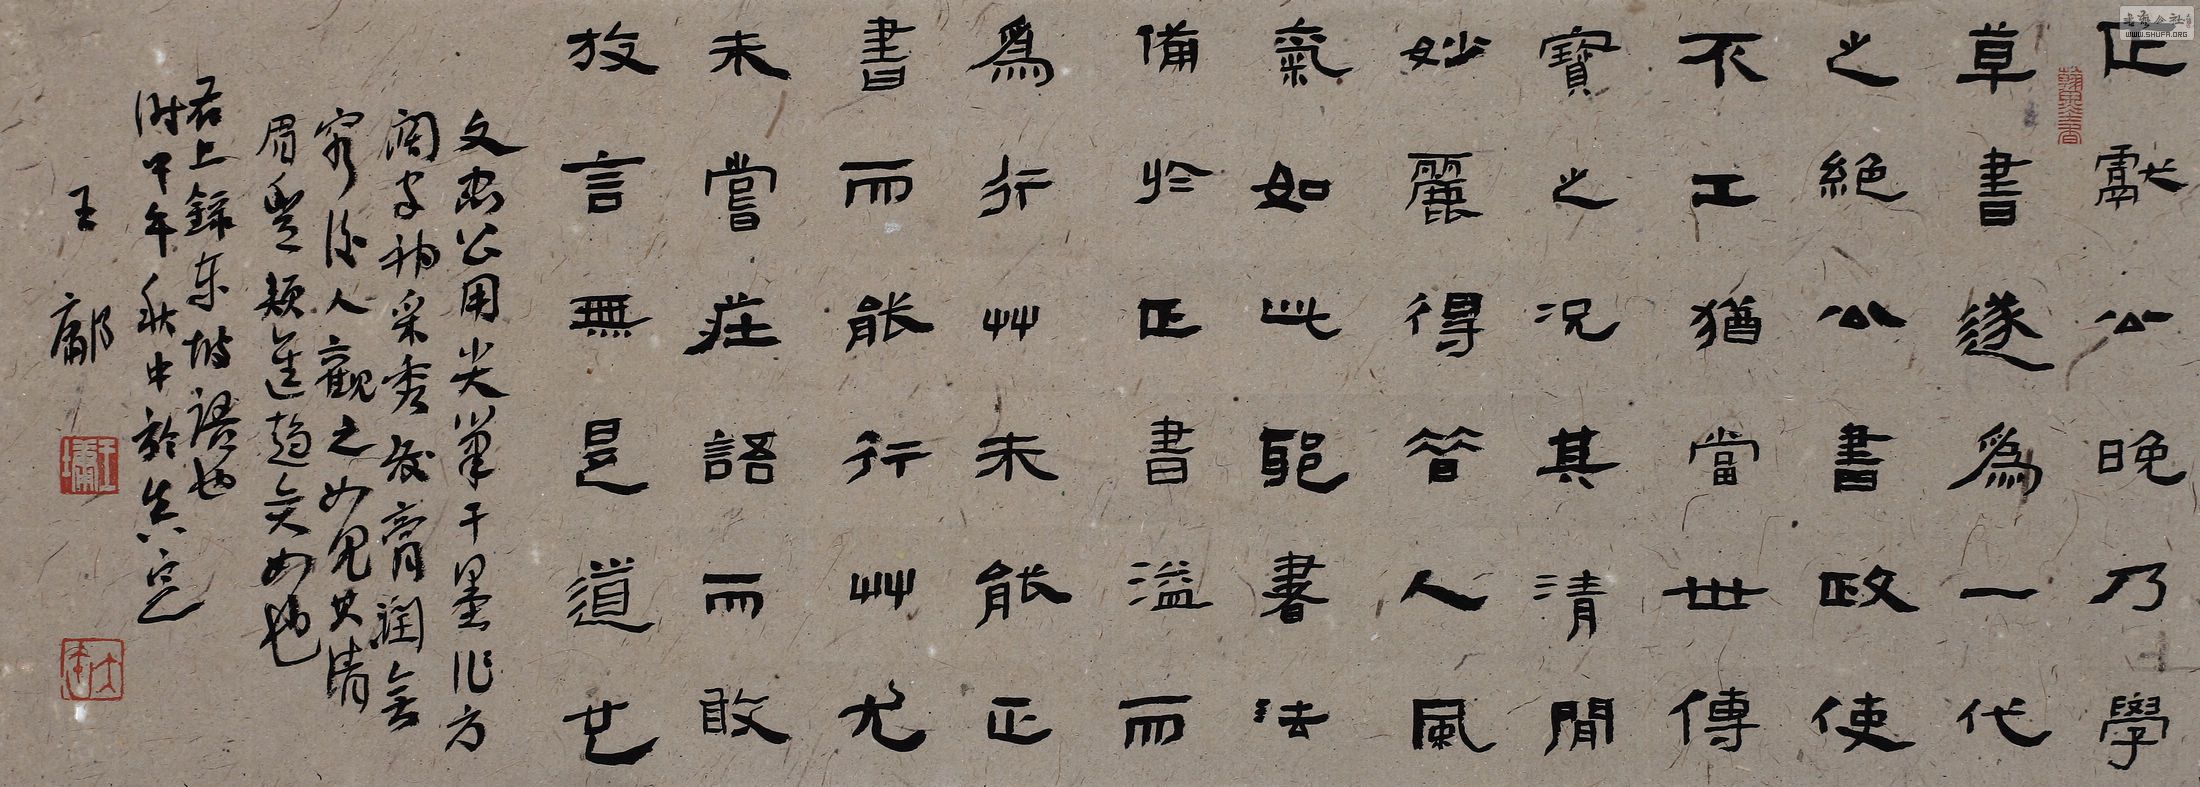 正獻公晚乃學
草書遂爲一代
之絕公書政使
不工猶當世傳
寶之況其清閒
妙麗得晉人風
氣如此耶書法
備於正書溢而
爲行艸未能正
書而能行艸尤
未嘗莊語而敢
放言無是道也
文忠公用尖筆干墨作方
闊字神采秀發膏潤無
窮後人觀之如見其清
眉豐頰進趨奕如也
右上錄東坡語也
時甲午年秋中於真定
王
翰墨香
书艺公社
WWW.SHUFA.ORG